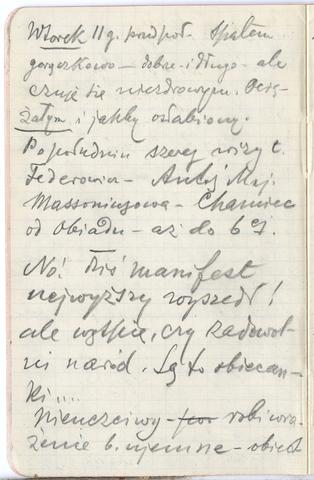 Wtorek 11 g. przedpoł. Spałem
gorączkowo – dobrze – i długo – ale
czuję się niezdrowym. Ocię-
żałym i jakby osłabiony.
Popołudniu szereg wizyt.
Federowicz – Antoś Maj.
Massoniusowa – Chamiec
od obiadu – aż do 6 ej.
No! Dziś manifest
najwyższy wyszedł!
ale wątpię, czy zadowol-
ni naród. Są to obiecan-
ki....
Nieuczciwy – robi wra-
żenie b. ujemne – obiect